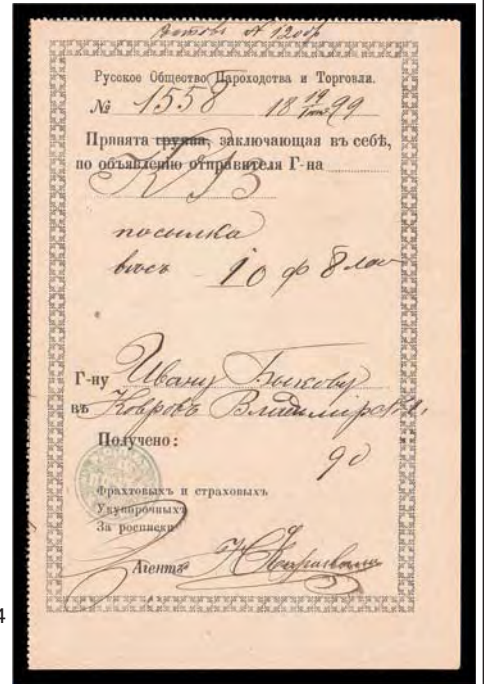 Русское Общество Пароходства и Торговли.
№ 1558 18 19/ 99
Принята группа, заключающая въ себѣ,
по объявленію отправителя Г-на
посылка
вѣсъ 10 ф 8 лот
Г-ну Ивану Быкову
въ Ковровъ Владимірск
Получено:
90
Фрахтовыхъ и страховыхъ
Укупорочныхъ
За росписки
Агентъ
4